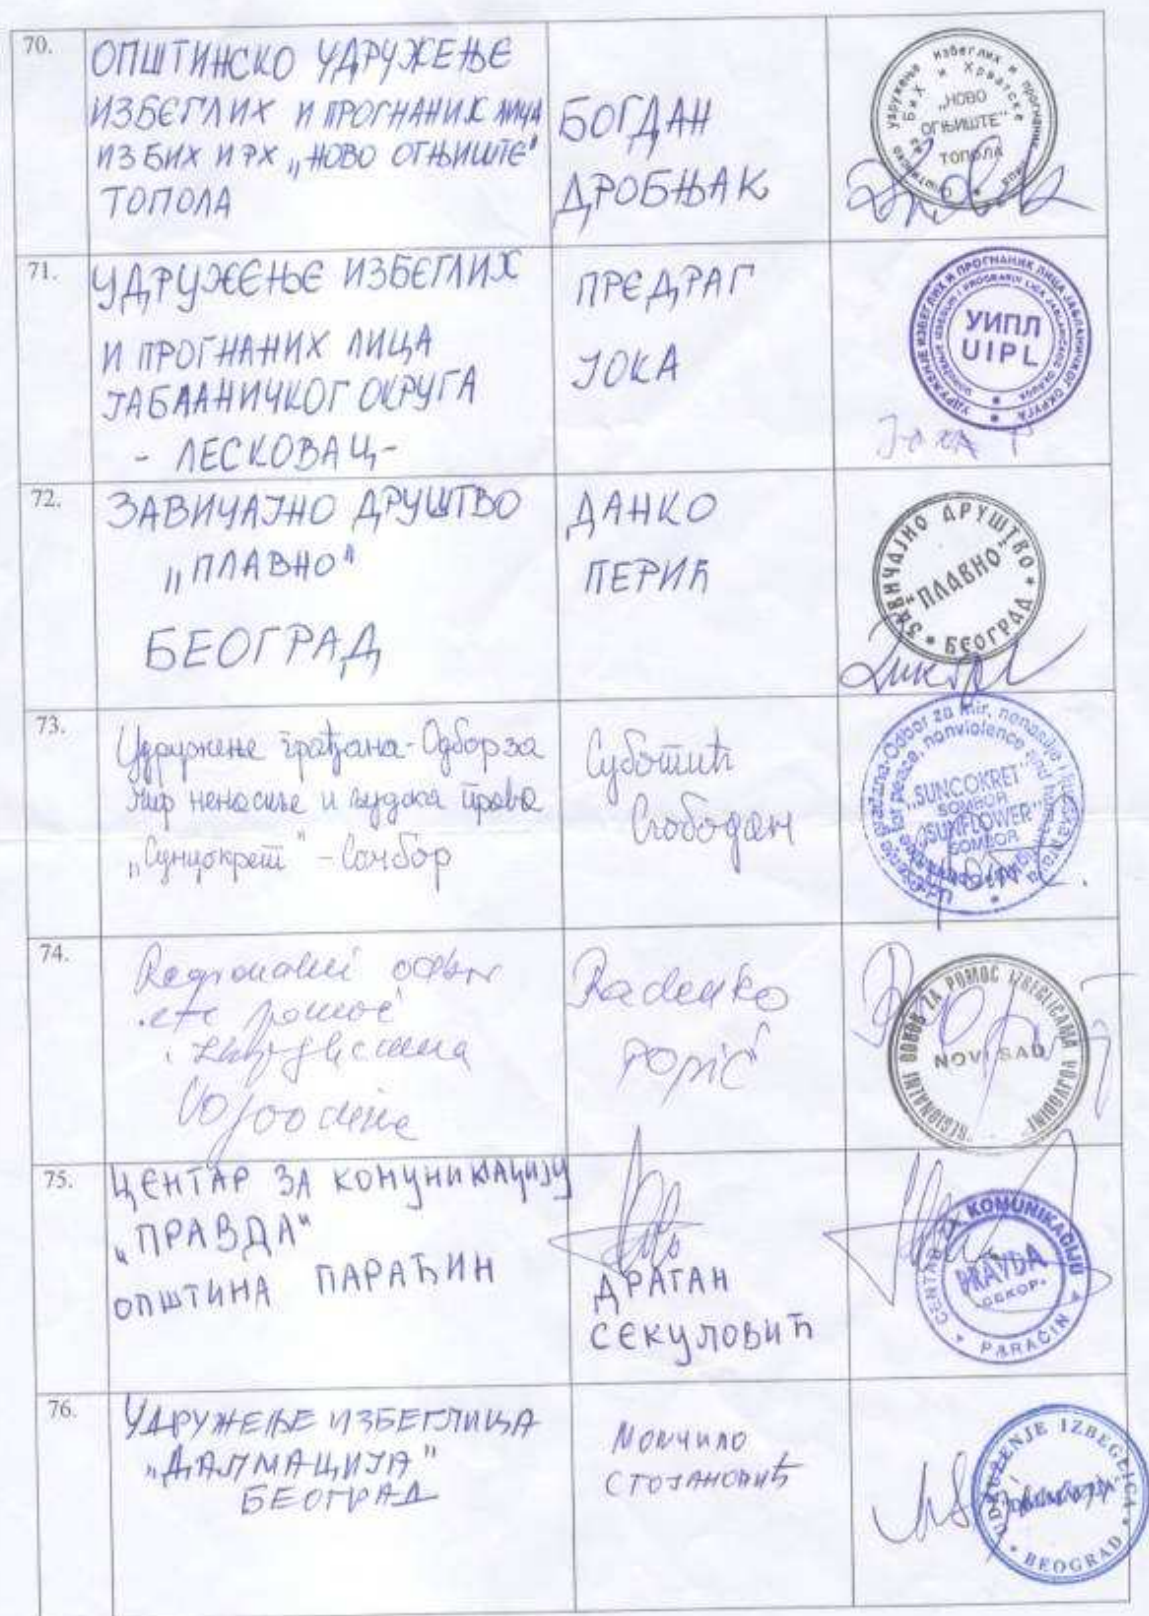 70.
ОПШТИНСКО УДРУЖЕЊЕ
ИЗБЕГЛИХ И ПРОГНАНИХ ЛИЦА
ИЗ БИХ И РХ „НОВО ОГЊИШТЕ"
ТОПОЛА
БОГДАН
ДРОБЊАК
„НОВО
ОГЊИШТЕ"
ТОПОЛА
71.
УДРУЖЕЊЕ ИЗБЕГЛИХ
И ПРОГНАНИХ ЛИЦА
ЈАБЛАНИЧКОГ ОКРУГА
- ЛЕСКОВАЦ-
ПРЕДРАГ
ЈОКА
УДРУЖЕЊЕ ИЗБЕГЛИХ И ПРОГНАНИХ ЛИЦА ЈАБЛАНИЧКОГ ОКРУГА
УИПЛ
UIPL
Јока П
72.
ЗАВИЧАЈНО ДРУШТВО
„ПЛАВНО"
БЕОГРАД
ДАНКО
ПЕРИЋ
ЗАВИЧАЈНО ДРУШТВО
„ПЛАВНО"
БЕОГРАД
73.
Удружење грађана-Одбор за
мир ненасиље и људска права
„Сунцокрет" - Сомбор
Суботић
Слободан
Udruženje građana-Odbor za mir, nenasilje i ljudska prava
for peace, nonviolence and human
„SUNCOKRET"
SOMBOR
„SUNFLOWER"
SOMBOR
74.
Regionalni odbor
za pomoć
izbjeglicama
Vojvodine
Radenko
Popić
"REGIONALNI ODBOR ZA POMOC IZBEGLICAMA VOJVODINE"
NOVI SAD
75.
ЦЕНТАР ЗА КОМУНИКАЦИЈУ
„ПРАВДА"
ОПШТИНА ПАРАЋИН
ДРАГАН
СЕКУЛОВИЋ
CENTAR ZA KOMUNIKACIJU
PRAVDA
PARAĆIN
76.
УДРУЖЕЊЕ ИЗБЕГЛИЦА
„ДАЛМАЦИЈА"
БЕОГРАД
МОМЧИЛО
СТОЈАНОВИЋ
UDRUŽENJE IZBEGLICA
BEOGRAD